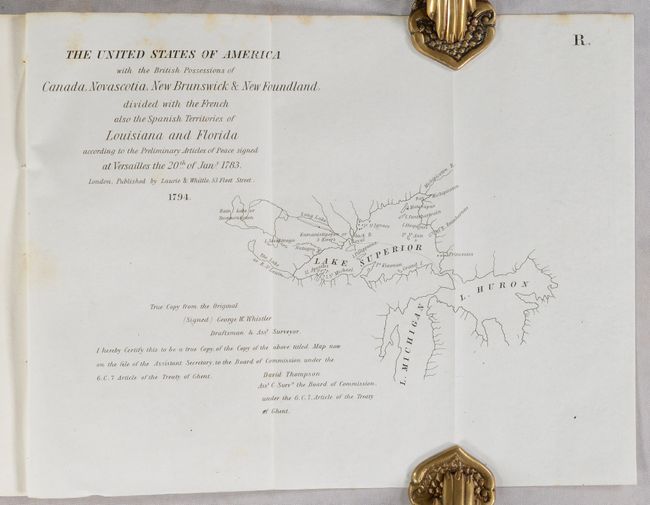 R.
THE UNITED STATES OF AMERICA
with the British Possessions of
Canada, Novascotia, New Brunswick & New Foundland,
divided with the French
also the Spanish Territories of
Louisiana and Florida
according to the Preliminary Articles of Peace signed
at Versailles the 20th of Jany. 1783.
London, Published by Laurie & Whittle, 53 Fleet Street.
1794.
Rain Lake or
Long Lake
LAKE SUPERIOR
L. HURON
L. MICHIGAN
True Copy from the Original
(Signed) George W. Whistler
Draftsman & Asst. Surveyor.
I hereby Certify this to be a true Copy, of the Copy of the above titled Map now
on the file of the Assistant Secretary, to the Board of Commission under the
6. & 7. Article of the Treaty of Ghent.
David Thompson
under the 6. & 7. Article of the Treaty
of Ghent.